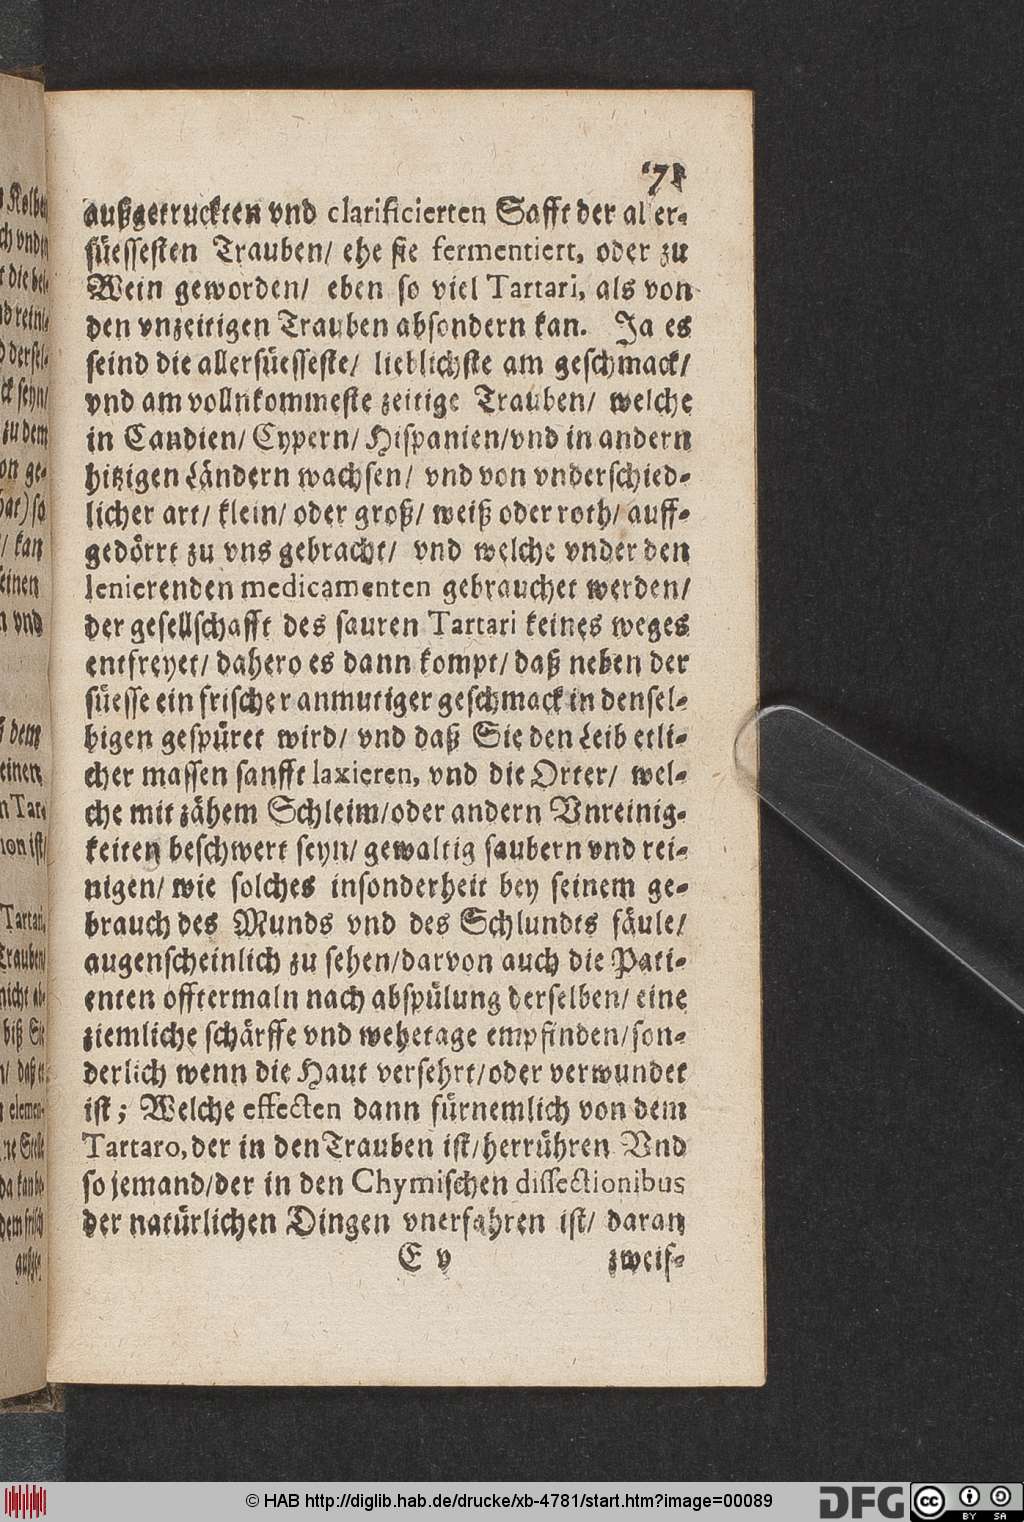 71
außgetruckten vnd clarificierten Safft der al er-
süessesten Trauben/ ehe sie fermentiert, oder zu
Wein geworden/ eben so viel Tartari, als von
den vnzeitigen Trauben absondern kan. Ja es
seind die allersüesseste/ lieblichste am geschmack/
vnd am vollnkommeste zeitige Trauben/ welche
in Candien/ Cypern/ Hispanien/vnd in andern
hitzigen Ländern wachsen/ vnd von vnderschied-
licher art/ klein/ oder groß/ weiß oder roth/ auff-
gedörrt zu vns gebracht/ vnd welche vnder den
lenierenden medicamenten gebrauchet werden/
der gesellschafft des sauren Tartari keines weges
entfreyet/ dahero es dann kompt/ daß neben der
süesse ein frischer anmutiger geschmack in densel-
bigen gespüret wird/ vnd daß Sie den Leib etli-
cher massen sanfft laxieren, vnd die Orter/ wel-
che mit zähem Schleim/oder andern Vnreinig-
keiten beschwert seyn/ gewaltig saubern vnd rei-
nigen/ wie solches insonderheit bey seinem ge-
brauch des Munds vnd des Schlundts fäule/
augenscheinlich zu sehen/darvon auch die Pati-
enten offtermaln nach abspülung derselben/ eine
ziemliche schärffe vnd wehetage empfinden/son-
derlich wenn die Haut versehrt/oder verwundet
ist; Welche effecten dann fürnemlich von dem
Tartaro, der in den Trauben ist/herrühren Vnd
so jemand/der in den Chymischen dissectionibus
der natürlichen Dingen vnerfahren ist/ daran
E v zweif-
© HAB http://diglib.hab.de/drucke/xb-4781/start.htm?image=00089
DFG
cc BY SA